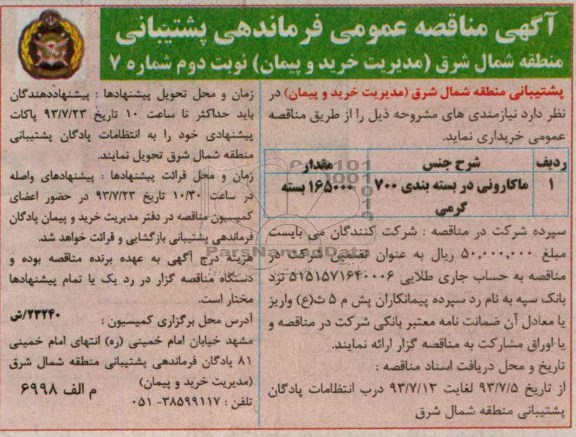 آگهی مناقصه عمومی فرماندهی پشتیبانی
منطقه شمال شرق (مدیریت خرید و پیمان) نوبت دوم شماره ۷
پشتیبانی منطقه شمال شرق (مدیریت خرید و پیمان) در
نظر دارد نیازمندی های مشروحه ذیل را از طریق مناقصه
عمومی خریداری نماید.
ردیف شرح جنس مقدار
۱ ماکارونی در بسته بندی ۷۰۰ ۱۶۵۰۰۰ بسته
گرمی
سپرده شرکت در مناقصه : شرکت کنندگان می بایست
مبلغ ۵۰,۰۰۰,۰۰۰ ریال به عنوان تضمین شرکت در
مناقصه به حساب جاری طلایی ۵۱۵۱۵۷۱۶۴۰۰۰۶ نزد
بانک سپه به نام رد سپرده پیمانکاران پش م ۵ ث(ع) واریز
یا معادل آن ضمانت نامه معتبر بانکی شرکت در مناقصه و
یا اوراق مشارکت به مناقصه گزار ارائه نمایند.
تاریخ و محل دریافت اسناد مناقصه :
از تاریخ ۹۳/۷/۵ لغایت ۹۳/۷/۱۳ درب انتظامات پادگان
پشتیبانی منطقه شمال شرق
زمان و محل تحویل پیشنهادها : پیشنهاددهندگان
باید حداکثر تا ساعت ۱۰ تاریخ ۹۳/۷/۲۳ پاکات
پیشنهادی خود را به انتظامات پادگان پشتیبانی
منطقه شمال شرق تحویل نمایند.
زمان و محل قرائت پیشنهادها : پیشنهادهای واصله
در ساعت ۱۰/۳۰ تاریخ ۹۳/۷/۲۳ در حضور اعضای
کمیسیون مناقصه در دفتر مدیریت خرید و پیمان پادگان
فرماندهی پشتیبانی بازگشایی و قرائت خواهد شد.
هزینه درج آگهی به عهده برنده مناقصه بوده و
دستگاه مناقصه گزار در رد یک یا تمام پیشنهادها
مختار است.
۲۳۲۴۰/ش
آدرس محل برگزاری کمیسیون :
مشهد خیابان امام خمینی (ره) انتهای امام خمینی
۸۱ پادگان فرماندهی پشتیبانی منطقه شمال شرق
(مدیریت خرید و پیمان)
م الف ۶۹۹۸
تلفن : ۳۸۵۹۹۱۱۷- ۰۵۱